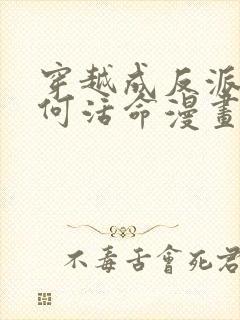 穿越成反派
何活命漫畫
不毒舌會死君